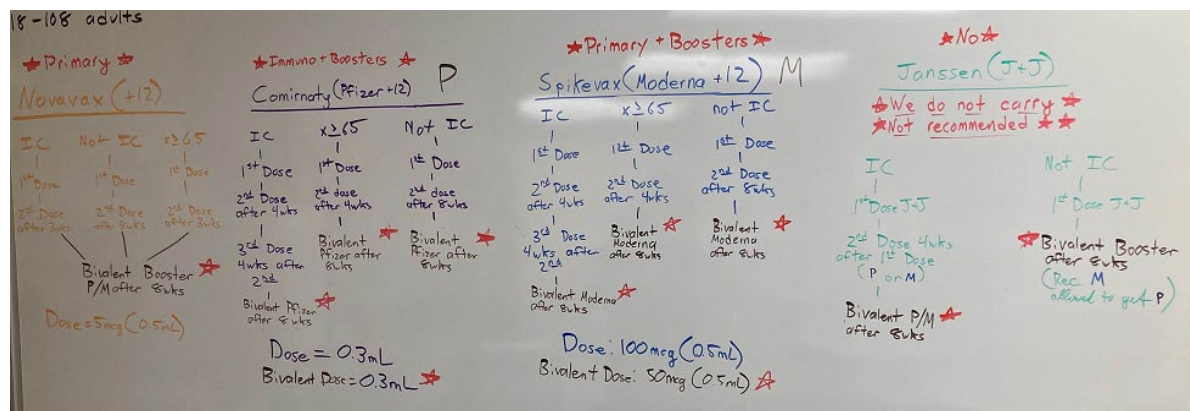 18-108 adults
☆Primary☆
Novavax (+12)
IC
1st Dose
2nd Dose
after 3wks
Not IC
1st Dose
2nd Dose
after 8wks
x≥65
1st Dose
2nd Dose
after 3wks
Bivalent Booster☆
P/M after 8wks
Dose=5mcg (0.5mL)
☆Immuno+Boosters☆
Comirnaty (Pfizer+12) P
IC
1st Dose
2nd Dose
after 4wks
3rd Dose
4wks after
2nd
Bivalent Pfizer☆
after 8wks
x≥65
1st Dose
2nd dose
after 4wks
Bivalent☆
Pfizer after
8wks
Not IC
1st Dose
2nd dose
after 8wks
Bivalent☆
Pfizer after
8wks
Dose = 0.3mL
Bivalent Dose=0.3mL☆
☆Primary + Boosters☆
Spikevax (Moderna +12) M
IC
1st Dose
2nd Dose
after 4wks
3rd Dose
4wks after
2nd
Bivalent Moderna☆
after 8wks
x≥65
1st Dose
2nd Dose
after 4wks
Bivalent☆
Moderna
after 8wks
not IC
1st Dose
2nd Dose
after 8wks
Bivalent☆
Moderna
after 8wks
Dose: 100mcg (0.5mL)
Bivalent Dose: 50mcg (0.5mL)☆
☆No☆
Janssen (J+J)
☆We do not carry☆
☆Not recommended☆☆
IC
1st Dose J+J
2nd Dose 4wks
after 1st Dose
(P or M)
Bivalent P/M☆
after 8wks
Not IC
1st Dose J+J
☆Bivalent Booster
after 8wks
(Rec M
allowed to get P)